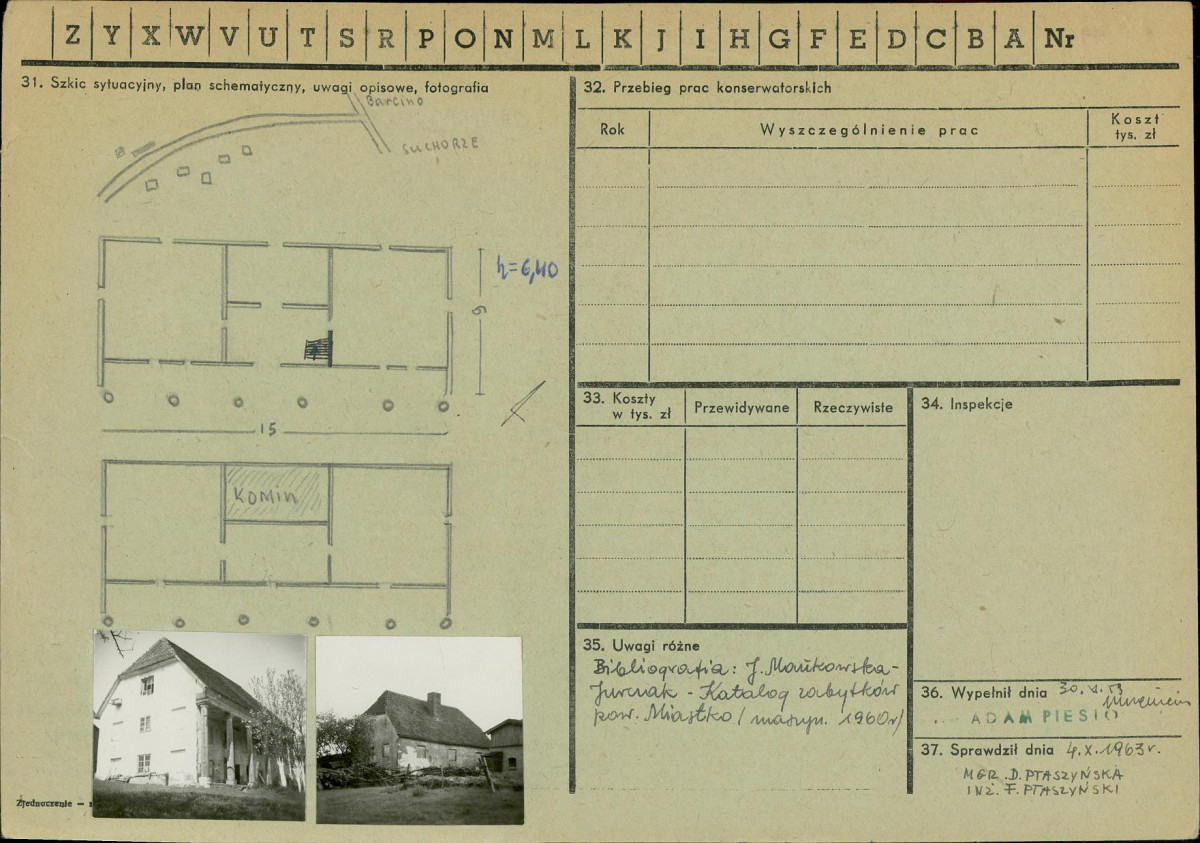 Z Y X W V U T S R P O N M L K J I H G F E D C B A Nr
31. Szkic sytuacyjny, plan schematyczny, uwagi opisowe, fotografia
Barcino
SUCHORZE
h=6,40
9
15
KOMIN
Zjednoczenie –
32. Przebieg prac konserwatorskich
Rok
Wyszczególnienie prac
Koszt
tys. zł
33. Koszty
w tys. zł
Przewidywane
Rzeczywiste
34. Inspekcje
35. Uwagi różne
Bibliografia: J. Mańkowska-
Jurczak - Katalog zabytków
pow. Miastko / maszyn. 1960 r/
36. Wypełnił dnia
ADAM PIESIO
37. Sprawdził dnia 4.X.1963 r.
MGR. D. PTASZYŃSKA
INŻ. F. PTASZYŃSKI